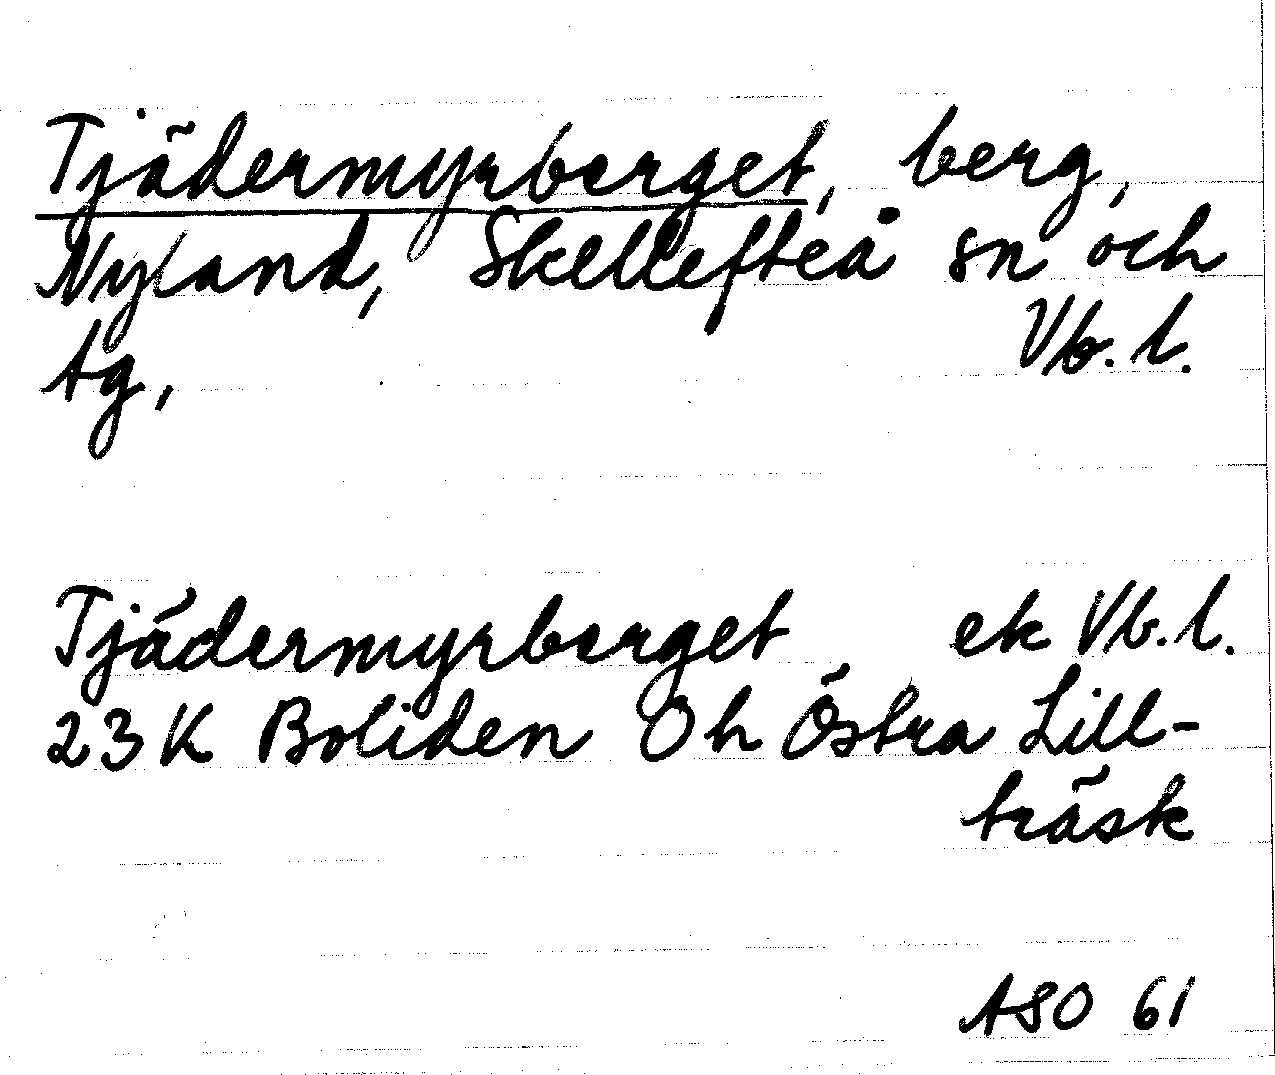 Tjädermyrberget, berg,
Nyland, Skellefteå sn och
tg, Vb. l.
Tjädermyrberget ek Vb. l.
23 K Boliden 0 h Östra Lill-
träsk
ASO 61